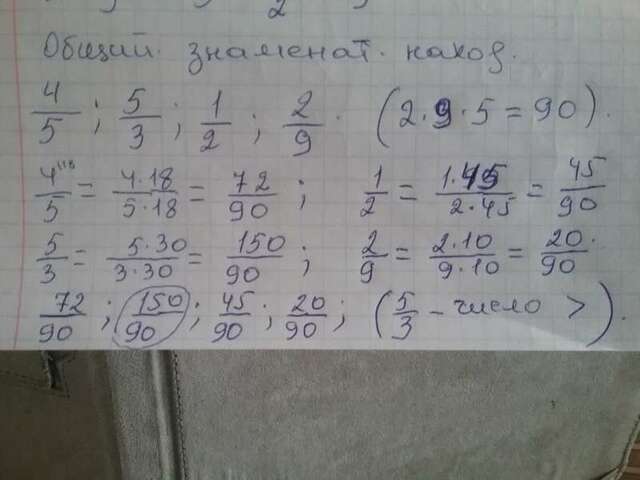 Общий. знаменат. наход.
4/5 ; 5/3 ; 1/2 ; 2/9. (2·9·5 = 90).
4/5 = 4·18/5·18 = 72/90 ; 1/2 = 1·45/2·45 = 45/90
5/3 = 5·30/3·30 = 150/90 ; 2/9 = 2·10/9·10 = 20/90.
72/90 ; 150/90 ; 45/90 ; 20/90 ; (5/3 - число >).